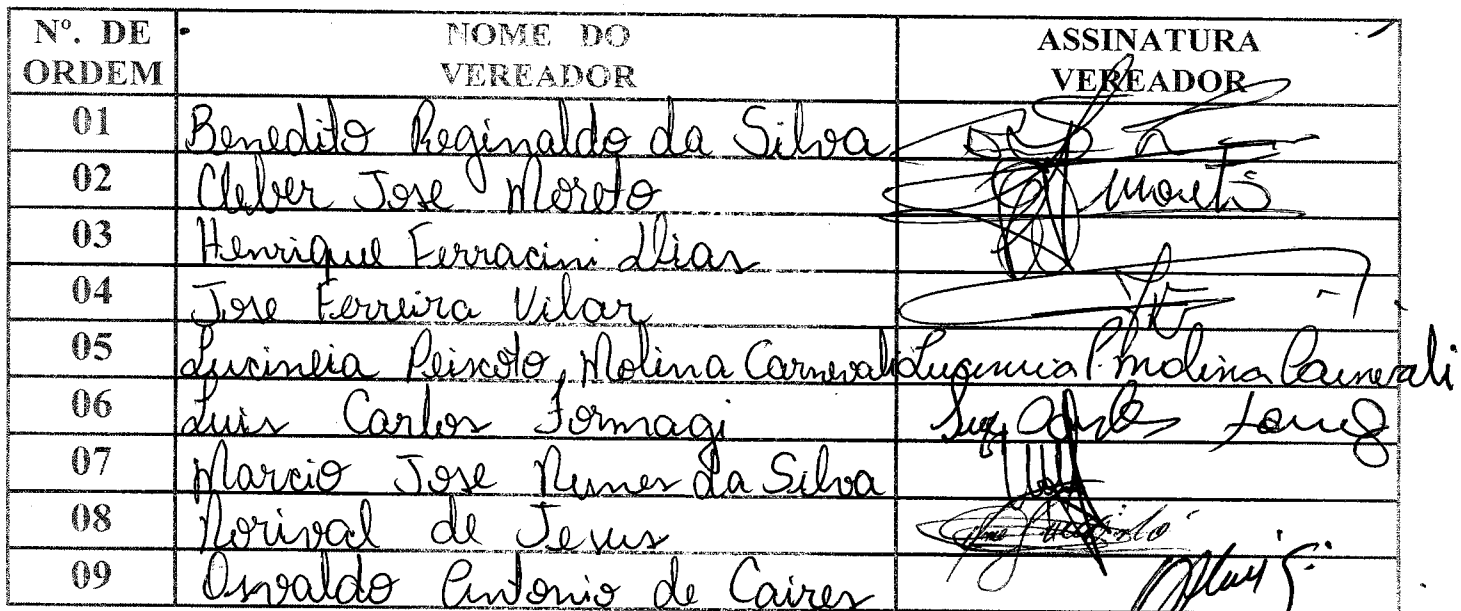 Nº. DE ORDEM NOME DO VEREADOR ASSINATURA VEREADOR
01 Benedito Reginaldo da Silva
02 Cleber Jose Moreto Moreto
03 Henrique Ferracini Dias
04 Jose Ferreira Vilar
05 Lucineia Peixoto Molina Carnevali Lucineia P. Molina Carnevali
06 Luis Carlos Formagi
07 Marcio Jose Nunes da Silva
08 Norival de Jesus
09 Osvaldo Antonio de Caires